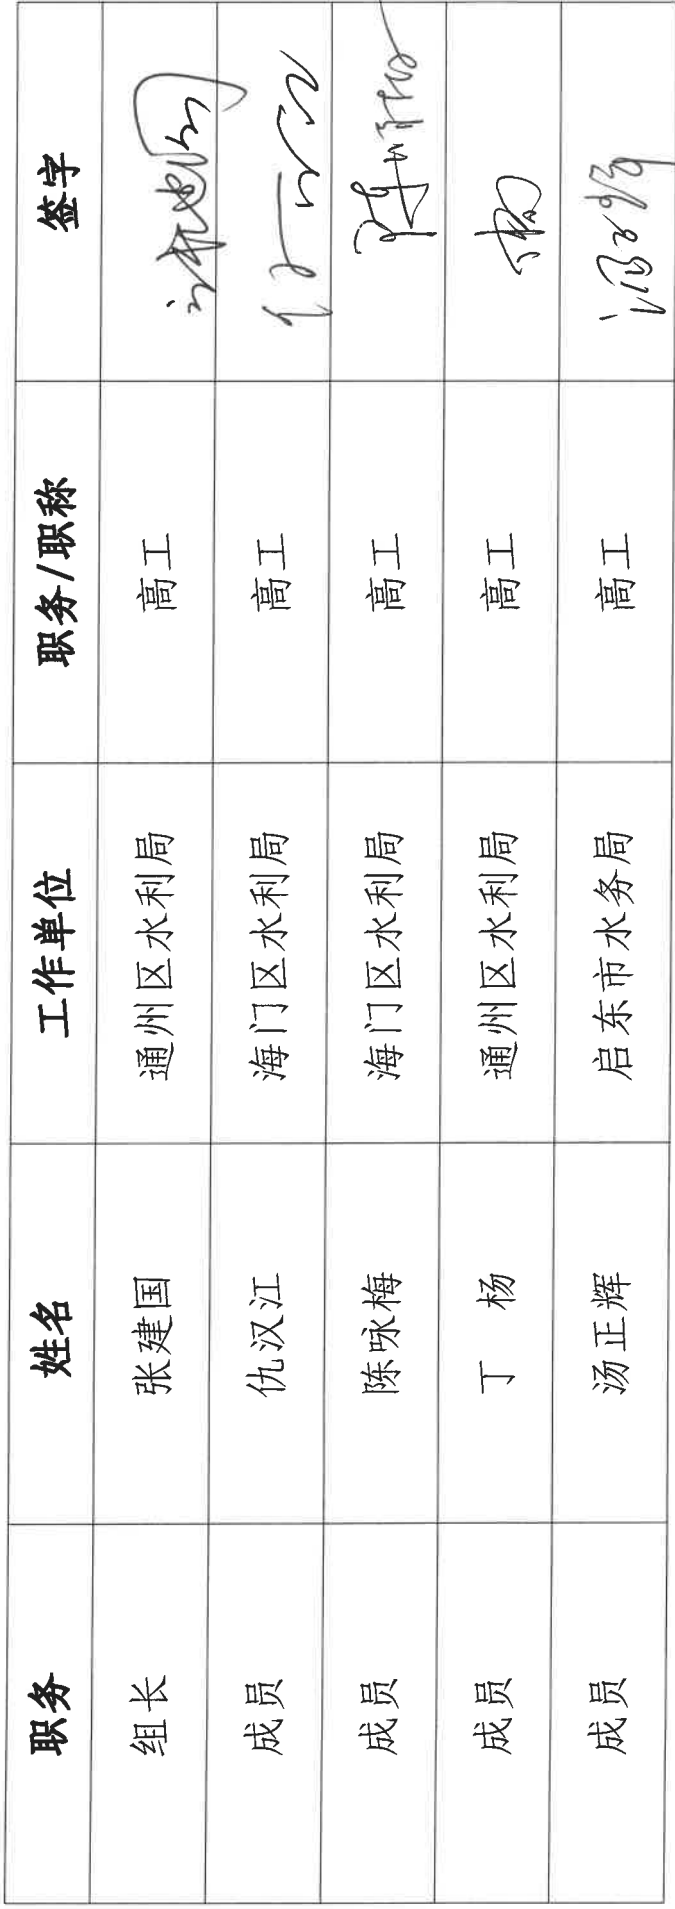 职务 姓名 工作单位 职务/职称 签字
组长 张建国 通州区水利局 高工 张建国
成员 仇汉江 海门区水利局 高工
成员 陈咏梅 海门区水利局 高工 陈咏梅
成员 丁 杨 通州区水利局 高工 丁杨
成员 汤正辉 启东市水务局 高工 汤正辉